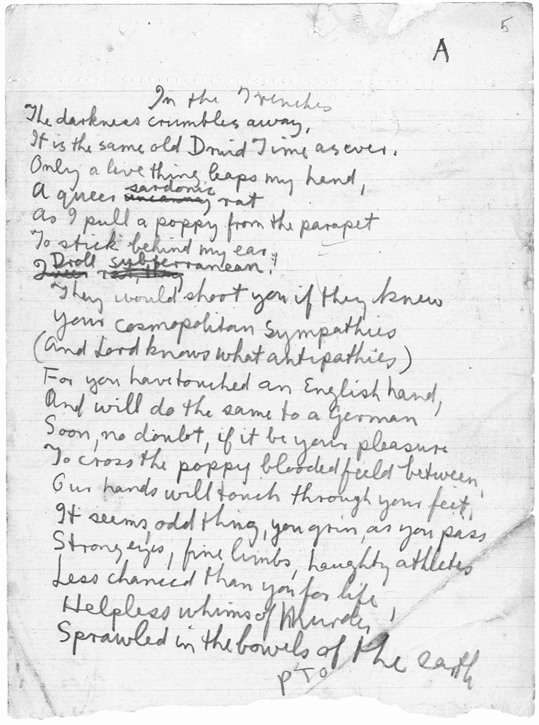 5
A
In the Trenches
The darkness crumbles away,
It is the same old Druid Time as ever.
Only a live thing leaps my hand,
sardonic
A queer uncanny rat
As I pull a poppy from the parapet
To stick behind my ear;
Droll subterranean!
Queer rat, they
They would shoot you if they knew
Your cosmopolitan sympathies
(And Lord knows what antipathies)
For you have touched an English hand,
And will do the same to a German
Soon, no doubt, if it be your pleasure
To cross the poppy blooded field between,
Our hands will touch through your feet,
It seems, odd thing, you grin, as you pass
Strong eyes, fine limbs, haughty athletes
Less chanced than you for life
Helpless whims of Murder,
Sprawled in the bowels of the earth
P T O